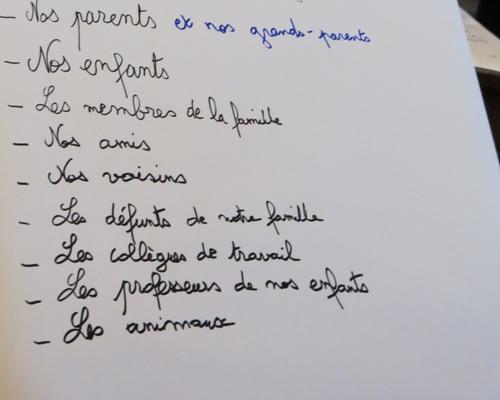 - Nos parents et nos grands-parents
- Nos enfants
- Les membres de la famille
- Nos amis
- Nos voisins
- Les défunts de notre famille
- Les collègues de travail
- Les professeurs de nos enfants
- Les animaux